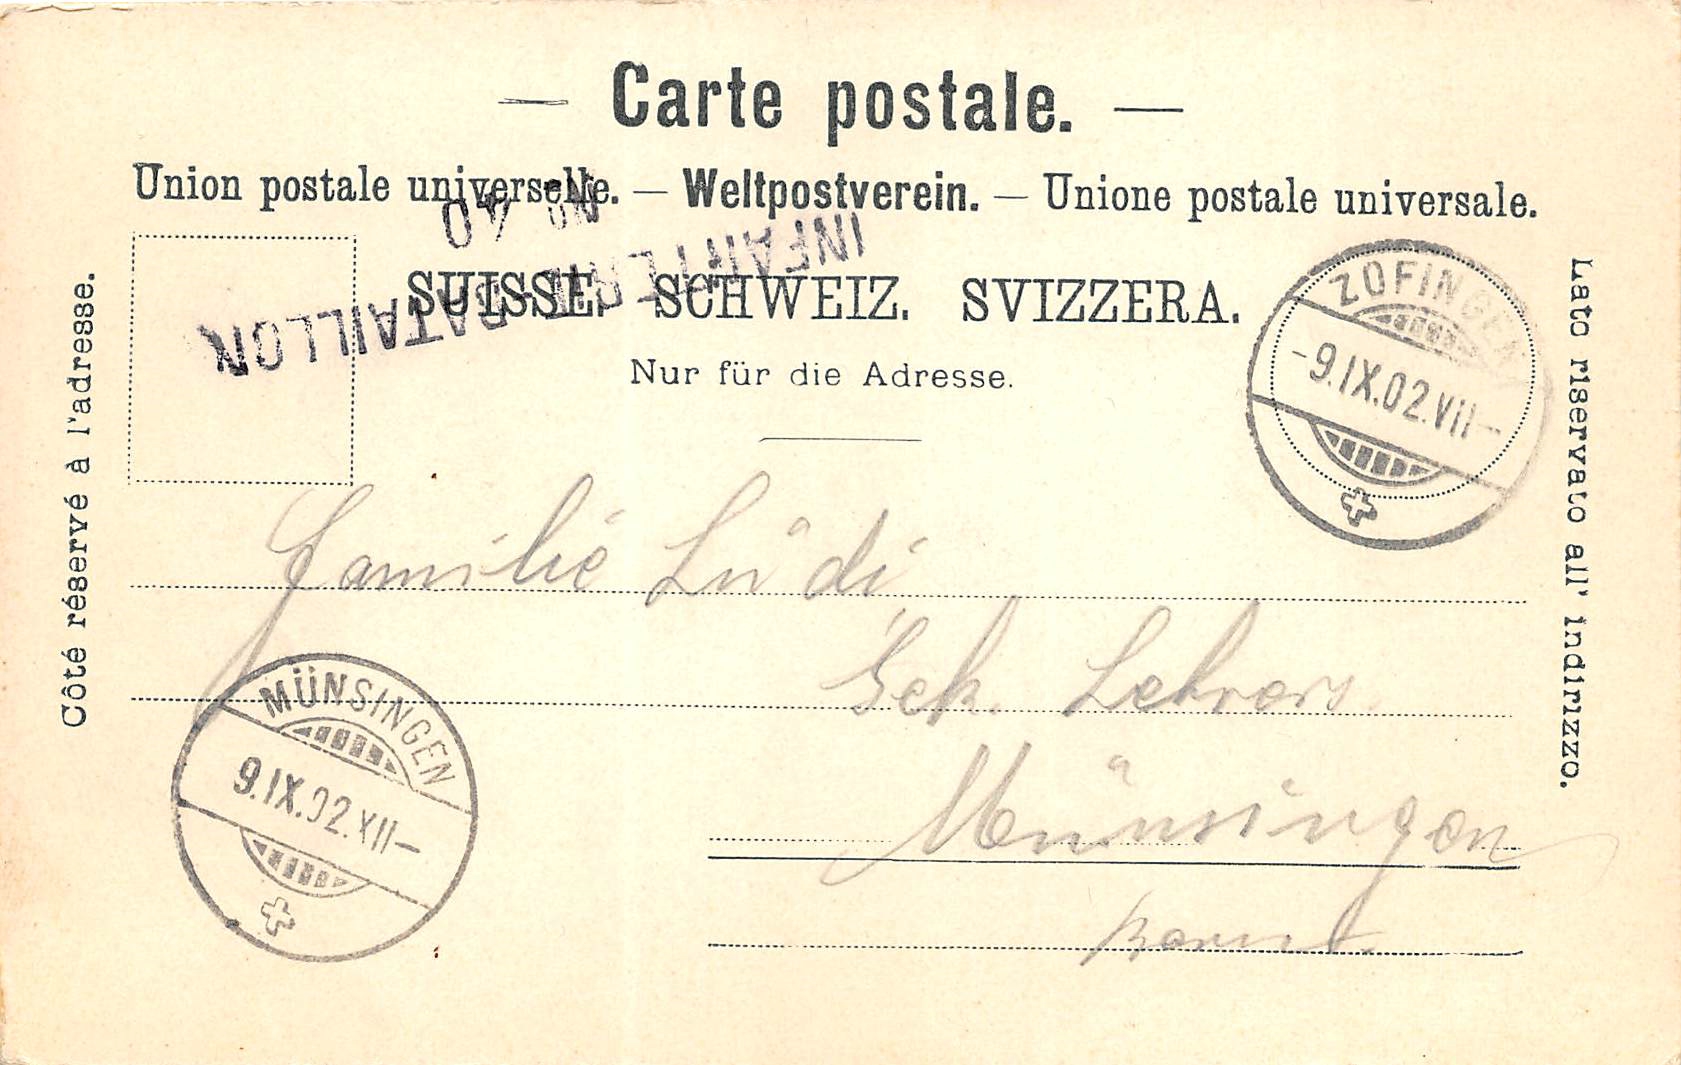 — Carte postale. —
Union postale universelle. — Weltpostverein. — Unione postale universale.
INFANTERIE-BATAILLON
No 40
SUISSE. SCHWEIZ. SVIZZERA.
Nur für die Adresse.
Côté réservé à l'adresse.
Lato riservato all' indirizzo.
ZOFINGEN
-9.IX.02.VII-
Familie Lüdi
Sek. Lehrers.
Münsingen
MÜNSINGEN
9.IX.02.XII-